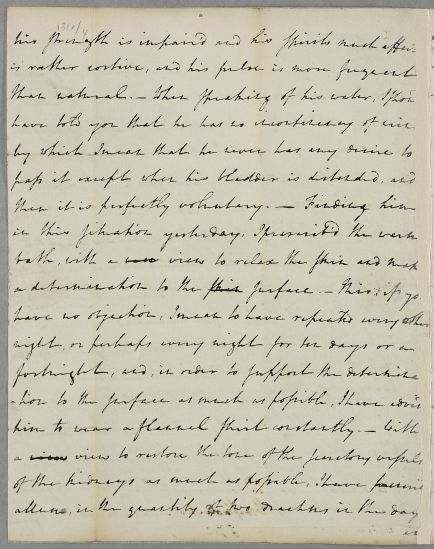 1310/4
his strength is impaired and his spirits much affec
is rather costive, and his pulse is more frequent
than natural. — When speaking of his water, I shou
have told you that he has no incontinency of urin
by which I mean that he never has any desire to
pass it except when his bladder is distended, and
then it is perfectly voluntary. — Finding him
in this situation yesterday, I prescrib'd the warm
bath, with a view to relax the skin and mak
a determination to the skin surface. — This, if yo
have no objection, I mean to have repeated every other
night, or perhaps every night for ten days or a
fortnight, and, in order to support the determina
-tion to the surface as much as possible, I have advis
him to wear a flannel shirt constantly. — With
a view to restore the tone of the secretory vessels
of the kidneys as much as possible, I have
allum, in the quantity of two drachms in the day
in